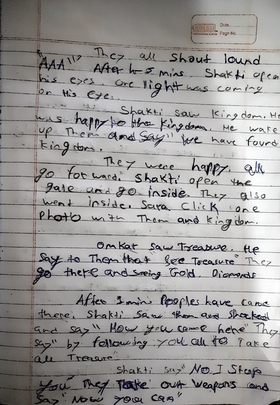 Date
Page No.
They all shout lound
"AAA!!" After 5 mins. Shakti open
his eyes. one light was coming
on His Eye.
Shakti saw Kingdom. He
was happy to the kingdom. He wake
up Them and say "We have found
Kingdom.
They were happy. all
go forward. Shakti open the
gate and go inside. They also
went inside. Sara click one
Photo with Them and Kingdom.
Omkar saw Treasure. He
say to Them that see Treasure" They
go there and seeing Gold. Diamonds
After 1 mins Peoples have came
there. Shakti saw them and shocked
and say "How you came here" They
say "by following you all to Take
all Treasure"
Shakti say "No. I Stop
you" They Take out weapons and
say "Now you can"